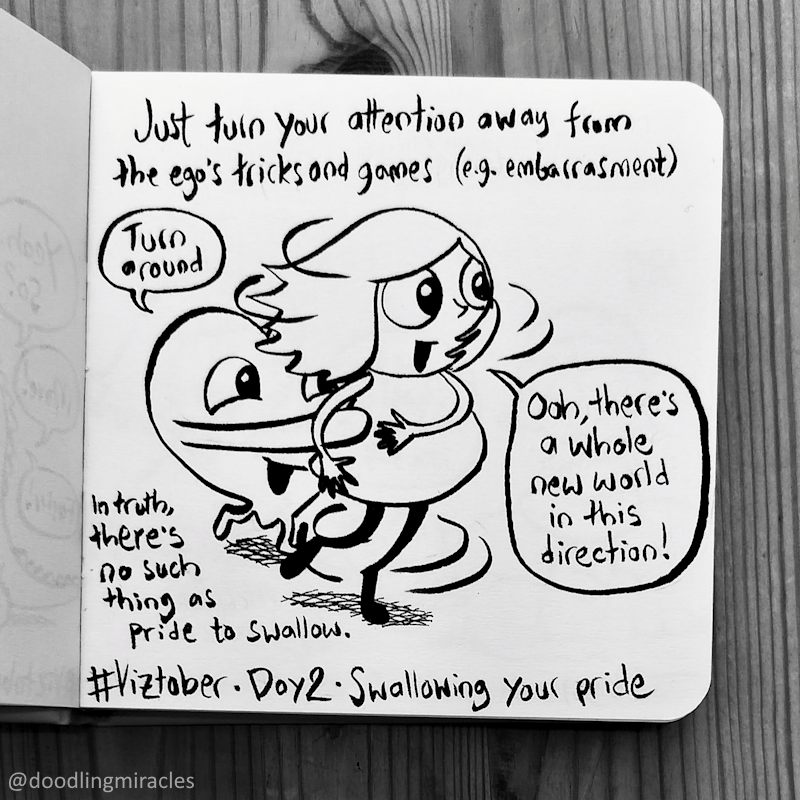 Just turn your attention away from
the ego's tricks and games (e.g. embarrasment)
Turn
around
Ooh, there's
a whole
new world
in this
direction!
In truth,
there's
no such
thing as
pride to swallow.
#Viztober · Day 2 · Swallowing your pride
@doodlingmiracles